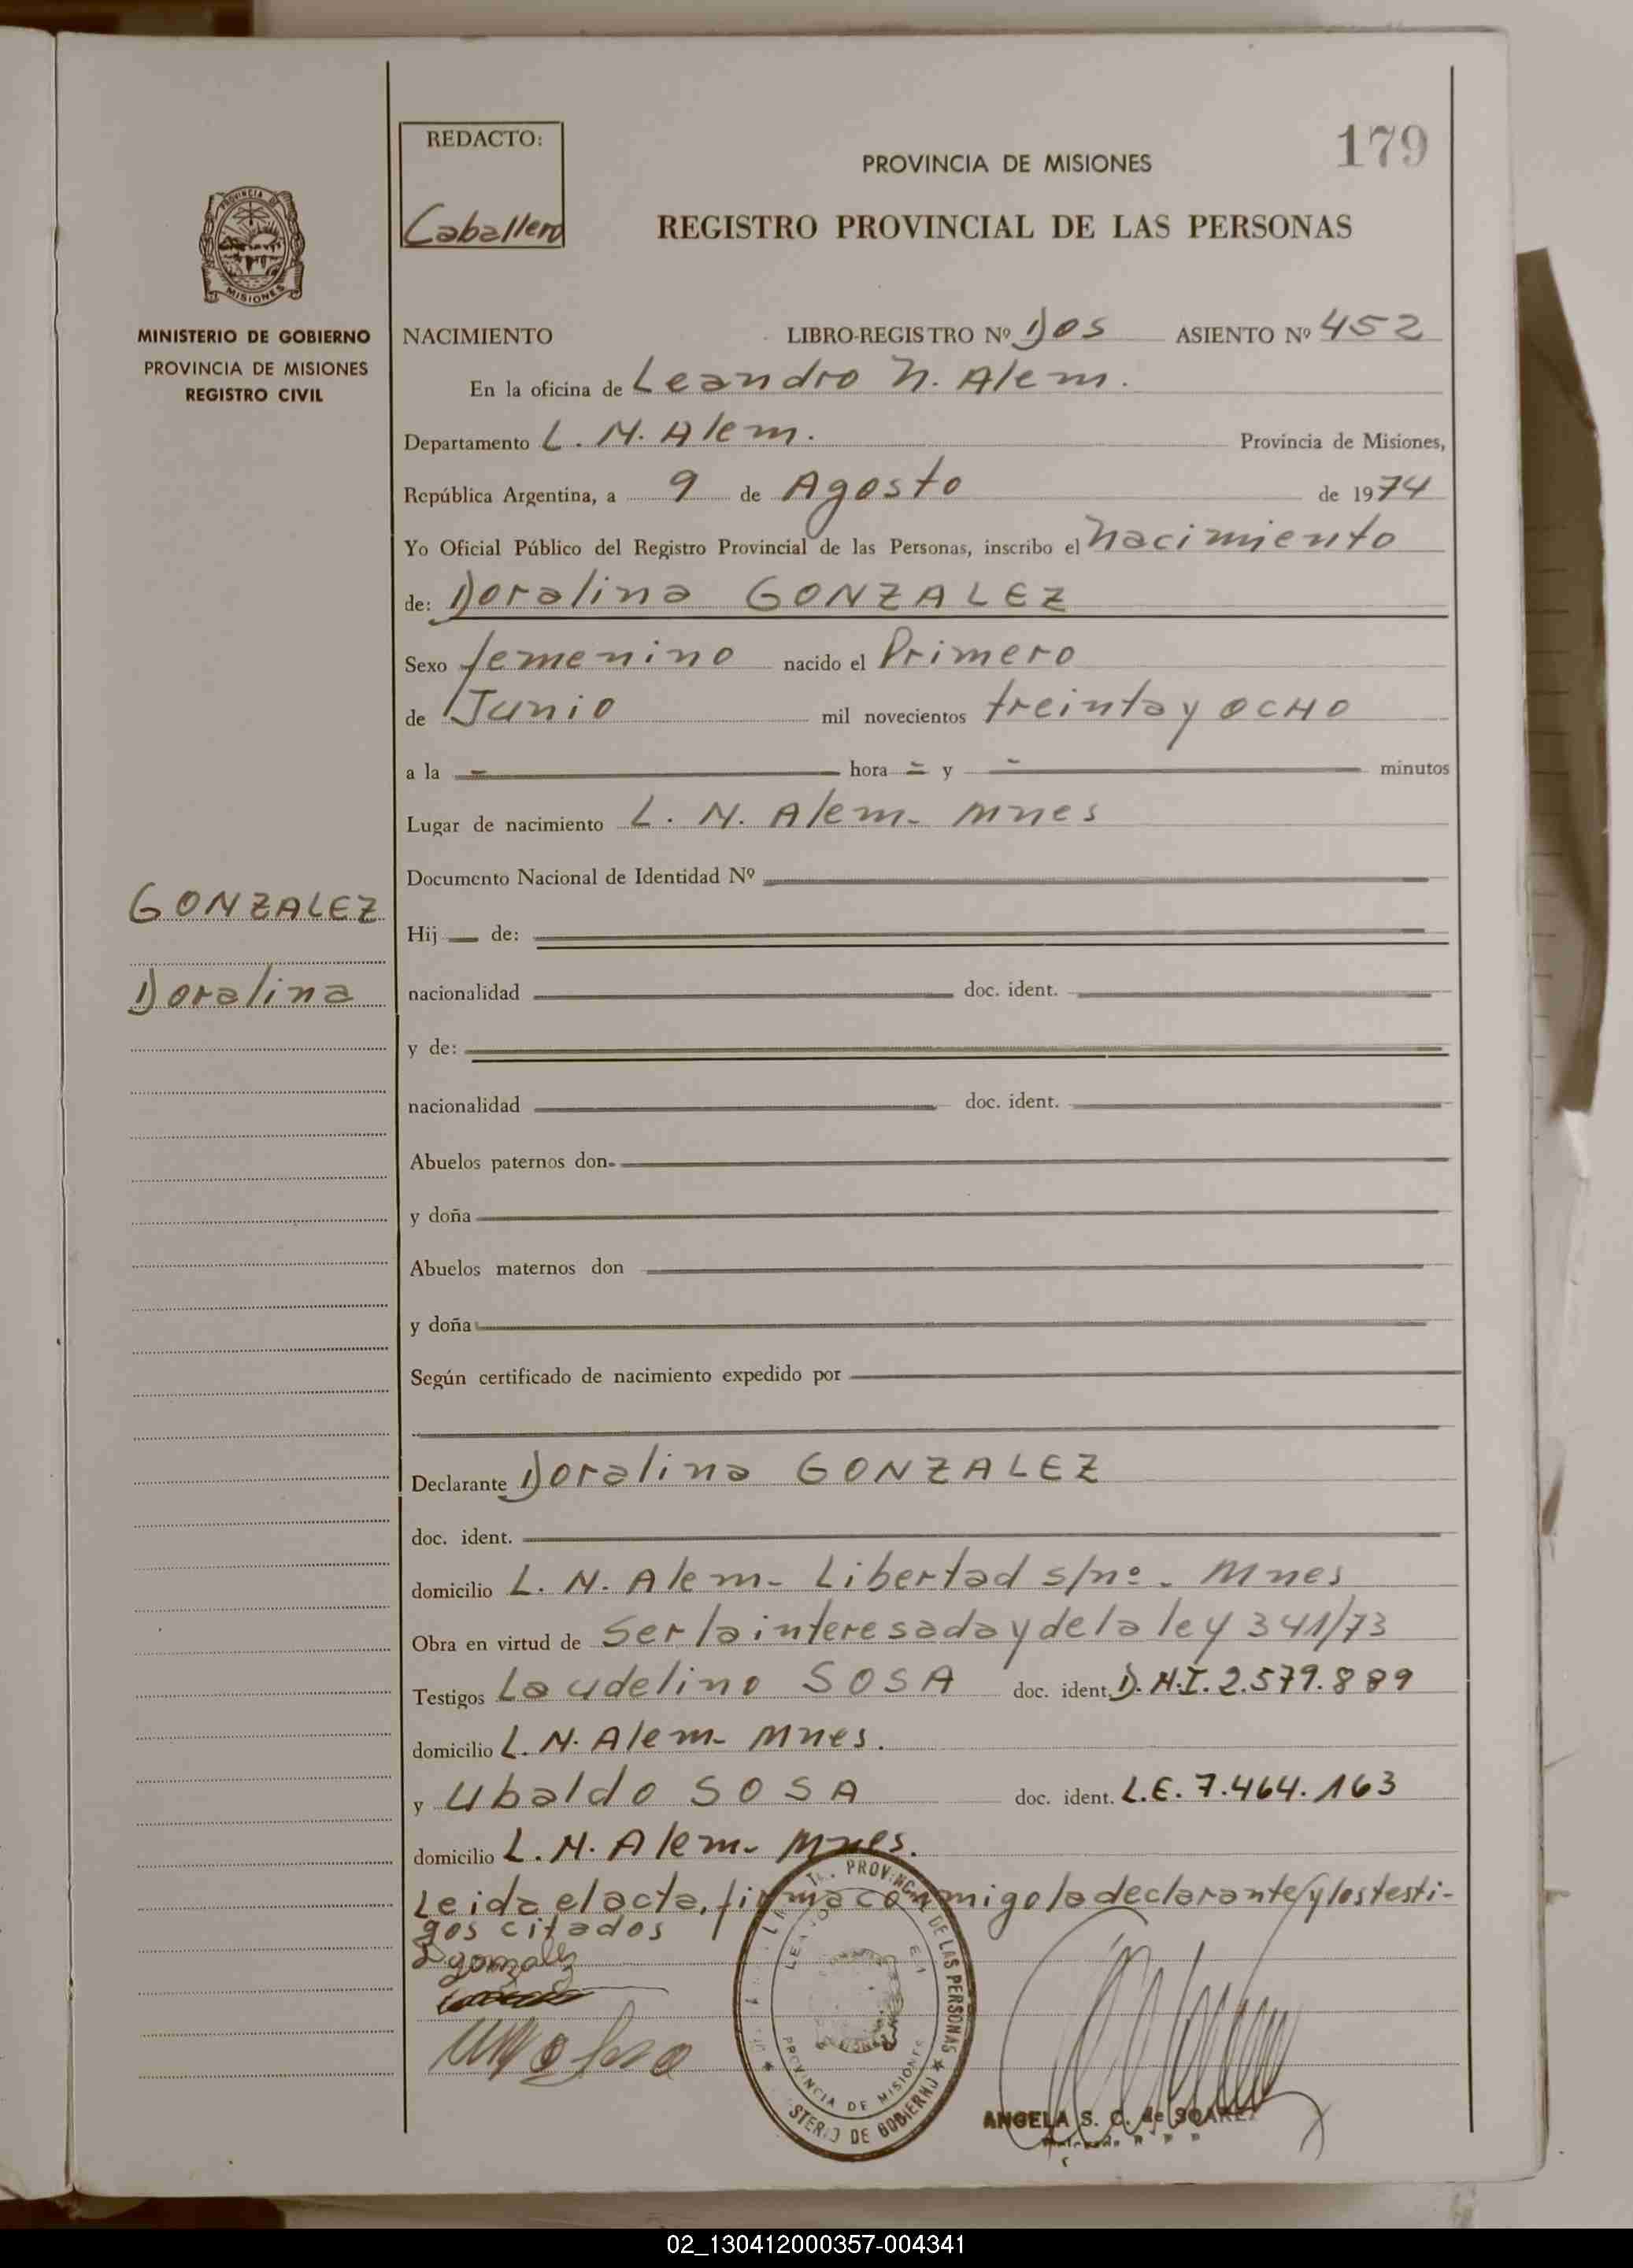 REDACTO:
Caballero
179
PROVINCIA DE MISIONES
REGISTRO PROVINCIAL DE LAS PERSONAS
MISIONES
MINISTERIO DE GOBIERNO
PROVINCIA DE MISIONES
REGISTRO CIVIL
NACIMIENTO LIBRO-REGISTRO Nº Dos ASIENTO Nº 452
En la oficina de Leandro N. Alem.
Departamento L. N. Alem. Provincia de Misiones,
República Argentina, a 9 de Agosto de 1974
Yo Oficial Público del Registro Provincial de las Personas, inscribo el nacimiento
de: Doralina GONZALEZ
Sexo femenino nacido el Primero
de Junio mil novecientos treinta y ocho
a la - hora = y - minutos
Lugar de nacimiento L. N. Alem- Mnes
Documento Nacional de Identidad Nº
GONZALEZ
Hij de:
Doralina
nacionalidad doc. ident.
y de:
nacionalidad doc. ident.
Abuelos paternos don
y doña
Abuelos maternos don
y doña
Según certificado de nacimiento expedido por
Declarante Doralina GONZALEZ
doc. ident.
domicilio L. N. Alem- Libertad s/nº. Mnes
Obra en virtud de Ser la interesada y de la ley 341/73
Testigos Laudelino SOSA doc. ident. D.N.I. 2.579.889
domicilio L. N. Alem- Mnes.
y Ubaldo SOSA doc. ident. L.E. 7.464.163
domicilio L. N. Alem- Mnes.
Leida el acta, firma conmigo la declarante/y los testi-
gos citados
PROVINCIAL DE LAS PERSONAS
PROVINCIA DE MISIONES
STERIO DE GOBIERNO
D gonzalez
ANGELA S. C. de SOAREZ
02_130412000357-004341